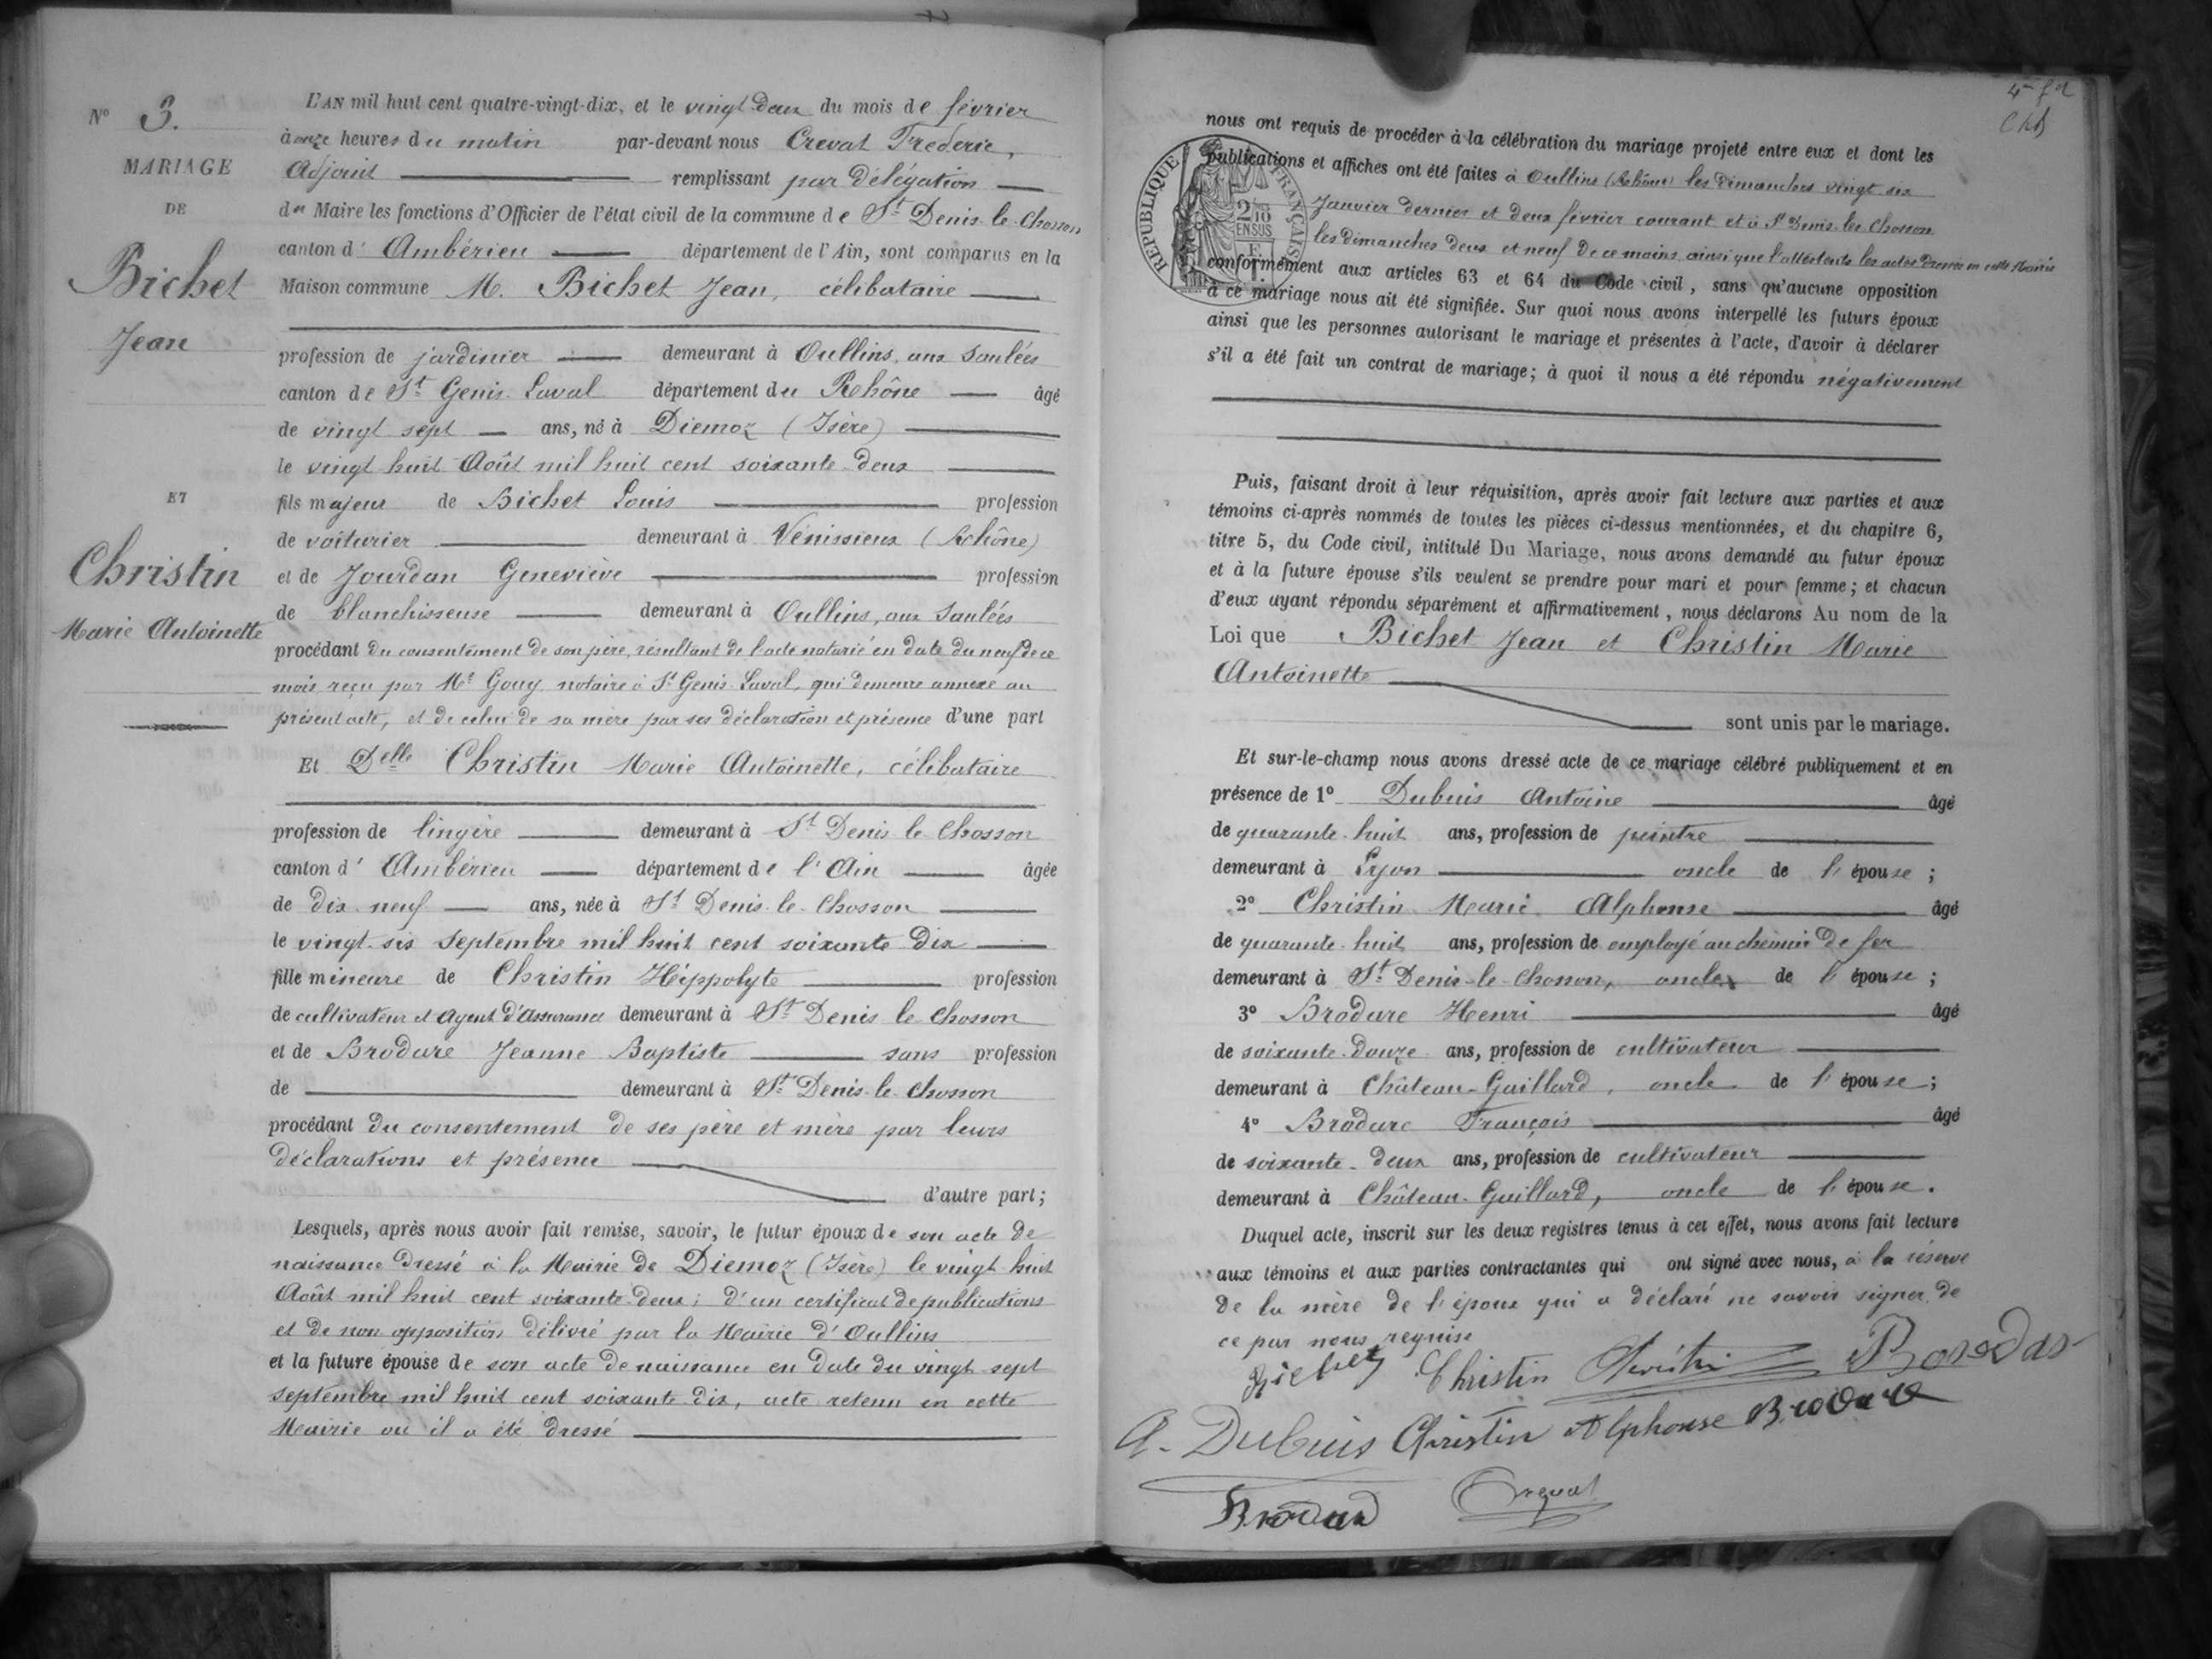 N° 3.
MARIAGE
DE
Bichet
Jean
ET
Christin
Marie Antoinette
L'AN mil huit cent quatre-vingt-dix, et le vingt-deux du mois de février
à onze heures du matin par-devant nous Creval Frédéric,
Adjoint remplissant par délégation
du Maire les fonctions d'Officier de l'état civil de la commune de St Denis-le-Chosson
canton d' Ambérieu département de l'Ain, sont comparus en la
Maison commune M. Bichet Jean, célibataire
profession de jardinier demeurant à Oullins, aux Saulées
canton de St Genis-Laval département du Rhône âgé
de vingt sept ans, né à Diemoz (Isère)
le vingt-huit Août mil huit cent soixante-deux
fils majeur de Bichet Louis profession
de voiturier demeurant à Vénissieux (Rhône)
et de Jourdan Geneviève profession
de blanchisseuse demeurant à Oullins, aux Saulées
procédant du consentement de son père, résultant de l'acte notarié en date du neuf de ce
mois reçu par Me Gouy, notaire à St Genis-Laval, qui demeure annexé au
présent acte, et de celui de sa mère par ses déclaration et présence d'une part
Et Delle Christin Marie Antoinette, célibataire
profession de lingère demeurant à St Denis-le-Chosson
canton d' Ambérieu département de l'Ain âgée
de dix-neuf ans, née à St Denis-le-Chosson
le vingt-six septembre mil huit cent soixante-dix
fille mineure de Christin Hippolyte profession
de cultivateur et Agent d'Assurance demeurant à St Denis-le-Chosson
et de Brodure Jeanne Baptiste sans profession
de demeurant à St Denis-le-Chosson
procédant du consentement de ses père et mère par leurs
déclarations et présence
d'autre part;
Lesquels, après nous avoir fait remise, savoir, le futur époux de son acte de
naissance dressé à la Mairie de Diemoz (Isère) le vingt-huit
Août mil huit cent soixante-deux; d'un certificat de publications
et de non opposition délivré par la Mairie d'Oullins
et la future épouse de son acte de naissance en date du vingt-sept
septembre mil huit cent soixante-dix, acte retenu en cette
Mairie où il a été dressé
nous ont requis de procéder à la célébration du mariage projeté entre eux et dont les
publications et affiches ont été faites à Oullins (Rhône) les dimanches vingt six
Janvier dernier et deux février courant et à St Denis-le-Chosson
les dimanches deux et neuf de ce mois ainsi que l'attestent les actes dressés en cette Mairie
RÉPUBLIQUE FRANÇAISE
2/10
EN SUS
conformément aux articles 63 et 64 du Code civil, sans qu'aucune opposition
à ce mariage nous ait été signifiée. Sur quoi nous avons interpellé les futurs époux
ainsi que les personnes autorisant le mariage et présentes à l'acte, d'avoir à déclarer
s'il a été fait un contrat de mariage; à quoi il nous a été répondu négativement
Puis, faisant droit à leur réquisition, après avoir fait lecture aux parties et aux
témoins ci-après nommés de toutes les pièces ci-dessus mentionnées, et du chapitre 6,
titre 5, du Code civil, intitulé Du Mariage, nous avons demandé au futur époux
et à la future épouse s'ils veulent se prendre pour mari et pour femme; et chacun
d'eux ayant répondu séparément et affirmativement, nous déclarons Au nom de la
Loi que Bichet Jean et Christin Marie
Antoinette
sont unis par le mariage.
Et sur-le-champ nous avons dressé acte de ce mariage célébré publiquement et en
présence de 1° Dubuis Antoine âgé
de quarante-huit ans, profession de peintre
demeurant à Lyon oncle de l'épouse;
2° Christin Marie Alphonse âgé
de quarante-huit ans, profession de employé au chemin de fer
demeurant à St Denis-le-Chosson, oncle de l'épouse;
3° Brodure Henri âgé
de soixante-douze ans, profession de cultivateur
demeurant à Château-Gaillard, oncle de l'épouse;
4° Brodure François âgé
de soixante-deux ans, profession de cultivateur
demeurant à Château-Gaillard, oncle de l'épouse.
Duquel acte, inscrit sur les deux registres tenus à cet effet, nous avons fait lecture
aux témoins et aux parties contractantes qui ont signé avec nous, à la réserve
de la mère de l'époux qui a déclaré ne savoir signer de
ce par nous requise
Bichet Christin Christin
A. Dubuis Christin Alphonse Brodure
Creval